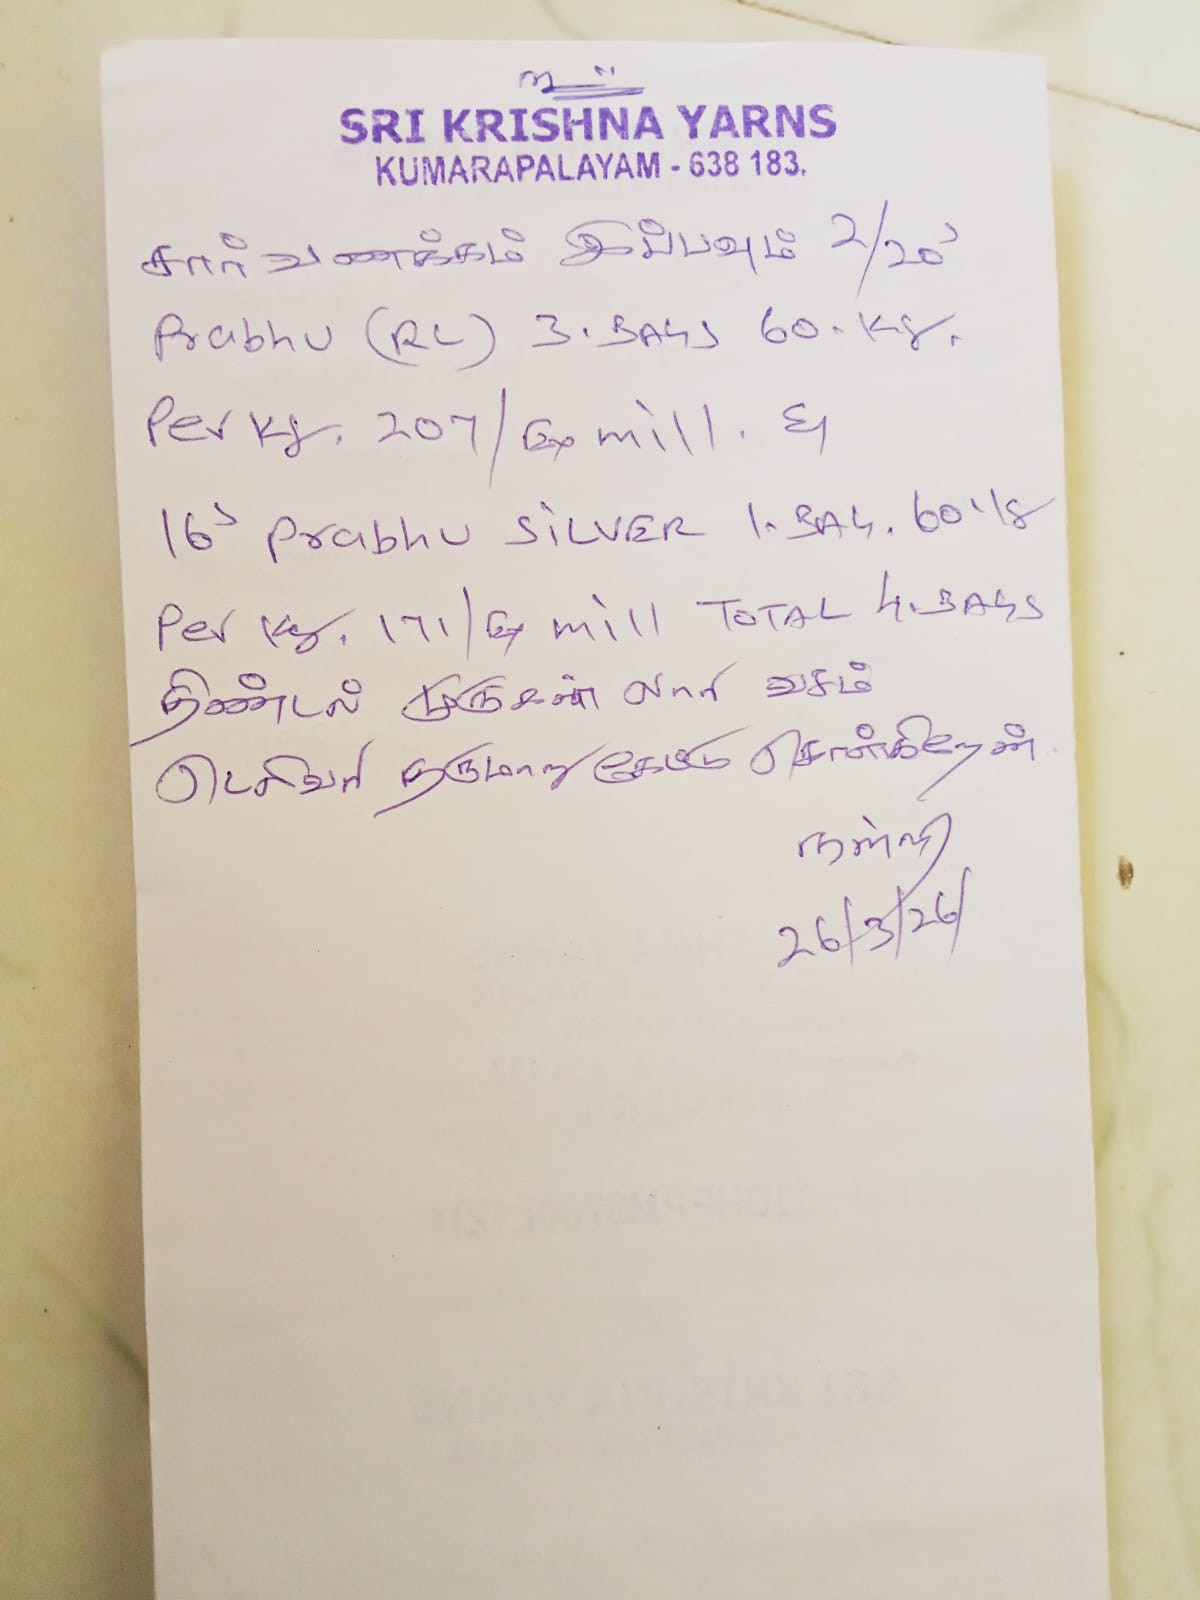 SRI KRISHNA YARNS
KUMARAPALAYAM - 638 183.
சார் வணக்கம் இப்பவும் 2/20s
Prabhu (RL) 3. BAGS 60. Kg.
Per Kg. 207/ Ex mill. &
16s Prabhu SILVER 1. BAG. 60
Per Kg. 171/ Ex mill TOTAL 4. BAGS
திண்டல் முருகன் லாரி வசம்
டெலிவரி தருமாறு கேட்டு கொள்கிறேன்.
நன்றி
26/3/26/